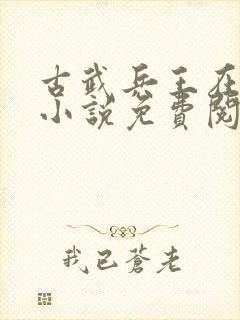 古武兵王在
小説免費閱
我已蒼老